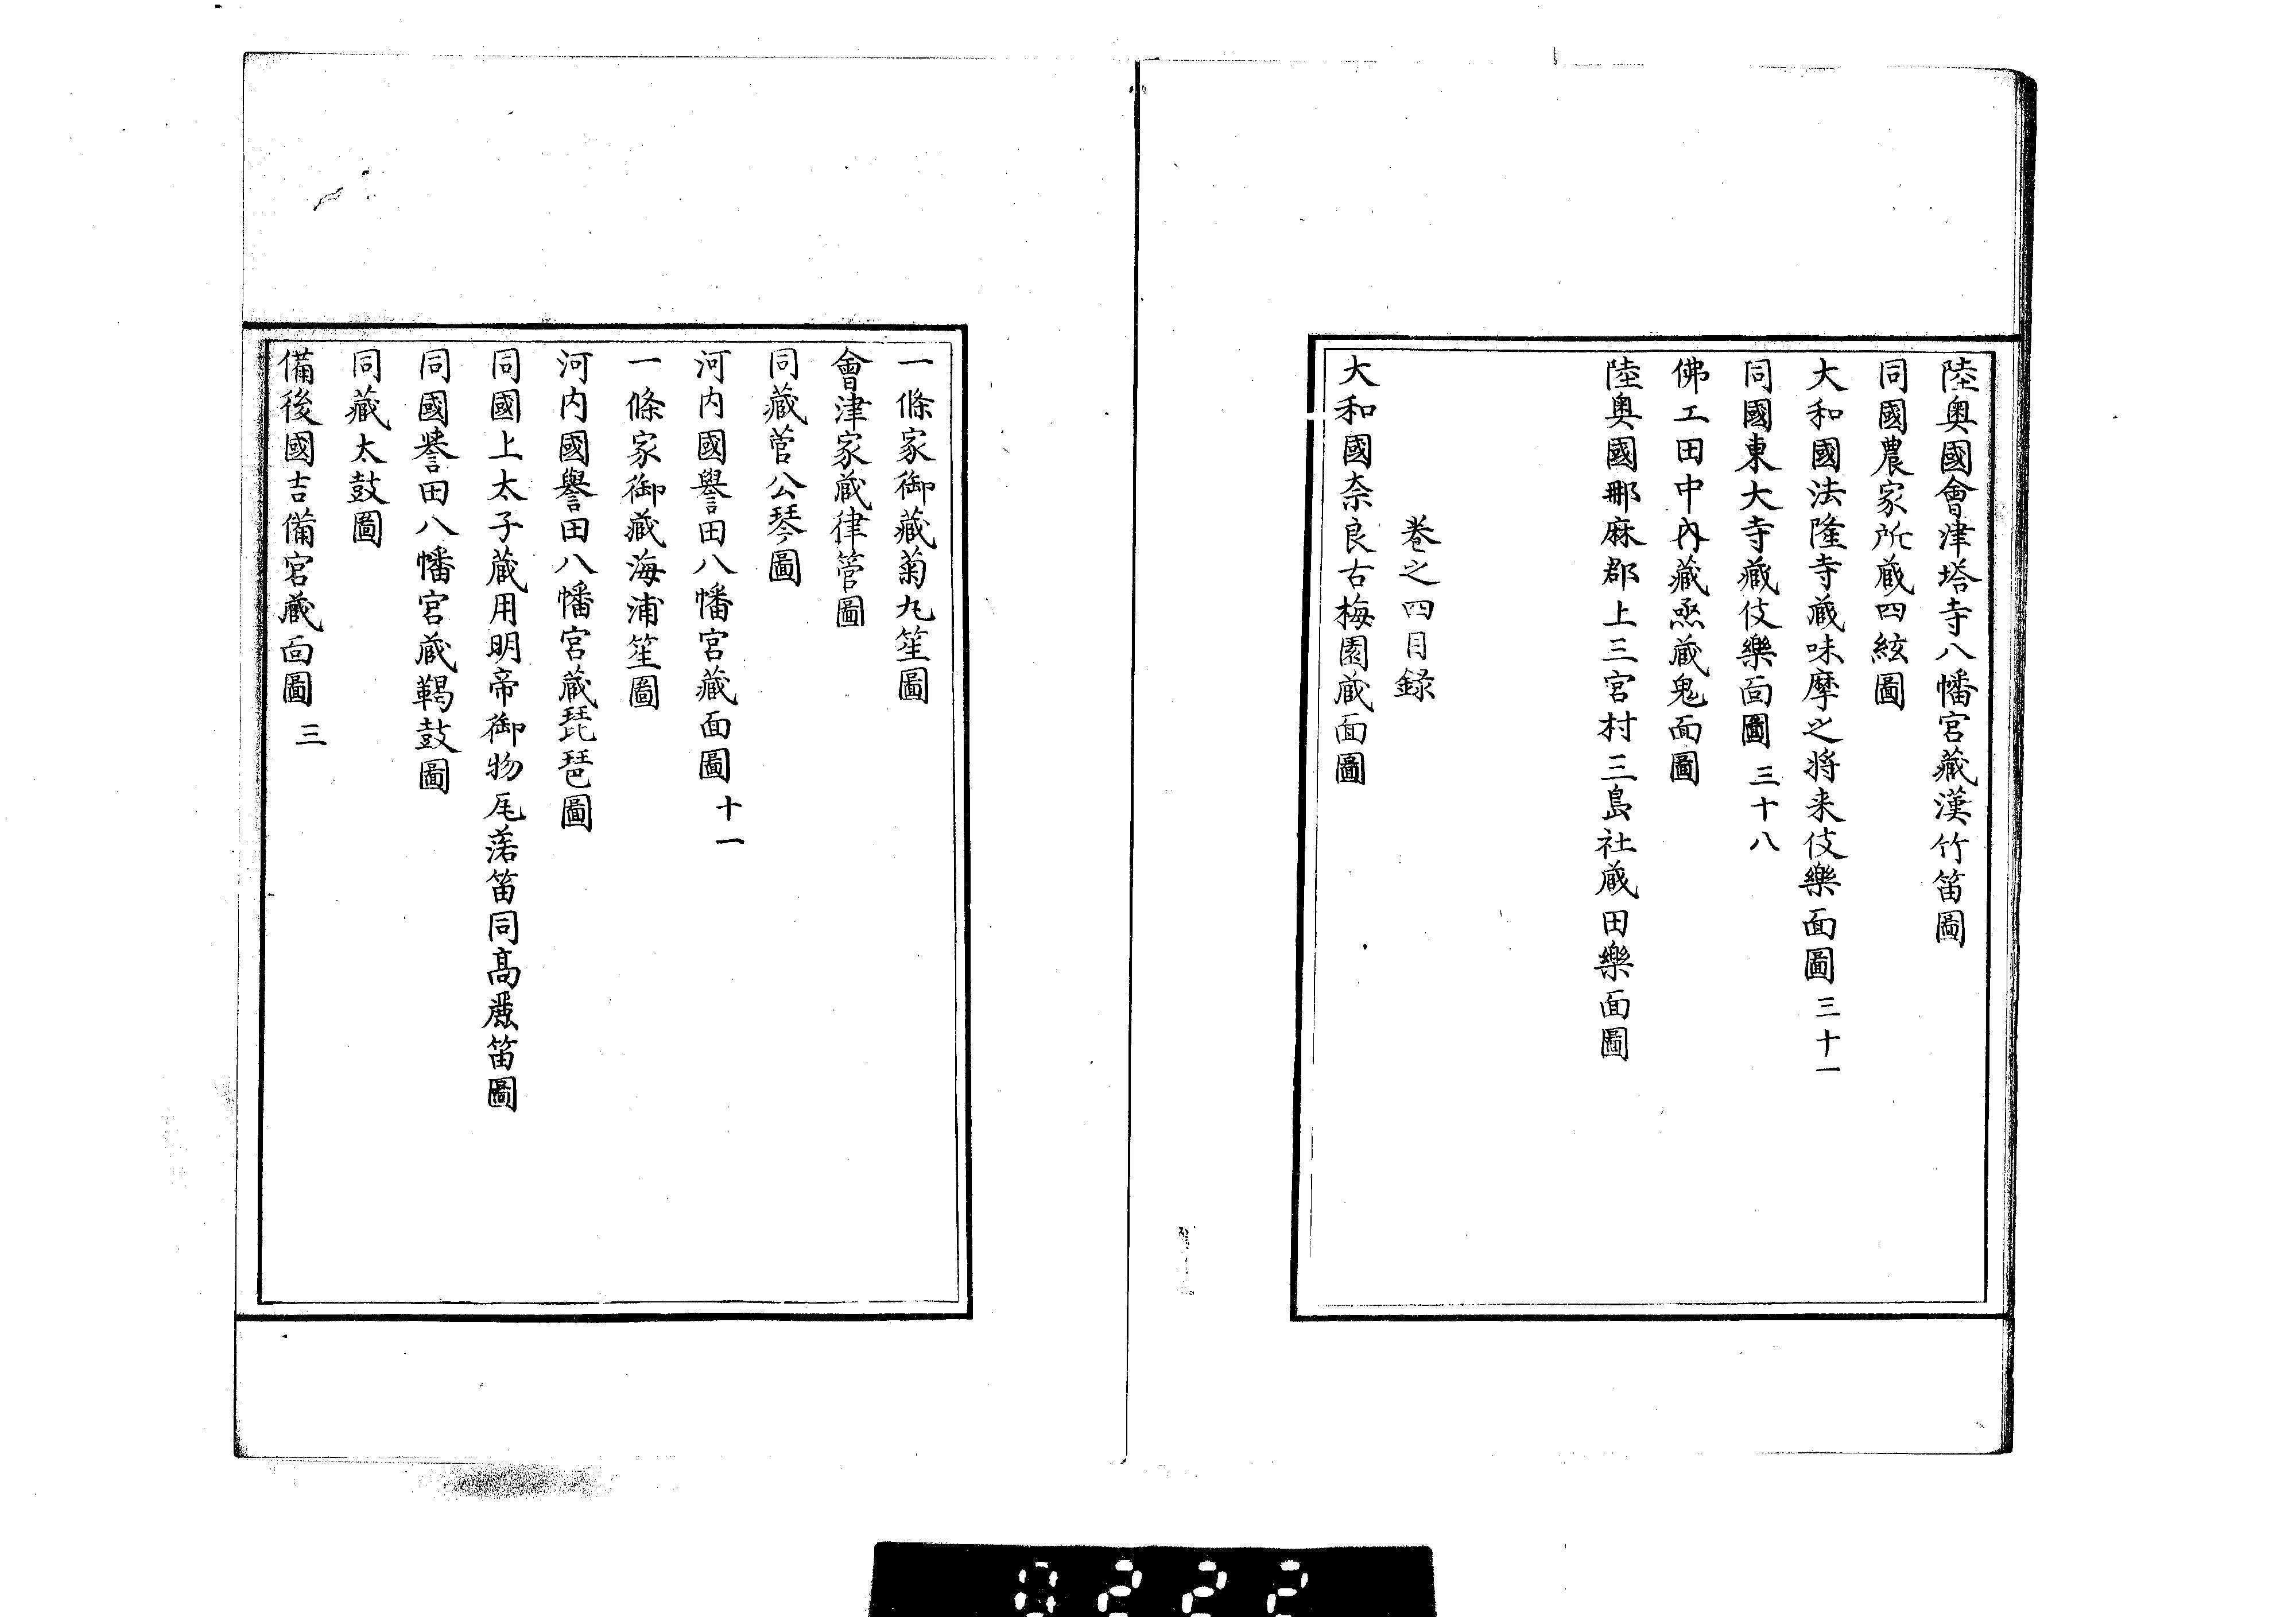 陸奥國會津塔寺八幡宮藏漢竹笛圖
同國農家所蔵四絃圖
大和國法隆寺蔵味摩之将来伎樂面圖 三十一
同國東大寺藏伎樂面圖 三十八
佛工田中内藏烝蔵鬼面圖
陸奥國那麻郡上三宮村三島社蔵田樂面圖
巻之四目録
大和國奈良古梅園蔵面圖
一條家御藏菊丸笙圖
會津家蔵律管圖
同藏菅公琴圖
河内國譽田八幡宮藏面圖 十一
一條家御藏海浦笙圖
河内國譽田八幡宮蔵琵琶圖
同國上太子蔵用明帝御物尾落笛同髙麗笛圖
同國誉田八幡宮蔵鞨鼓圖
同藏太鼓圖
備後國吉備宮蔵面圖 三
0222